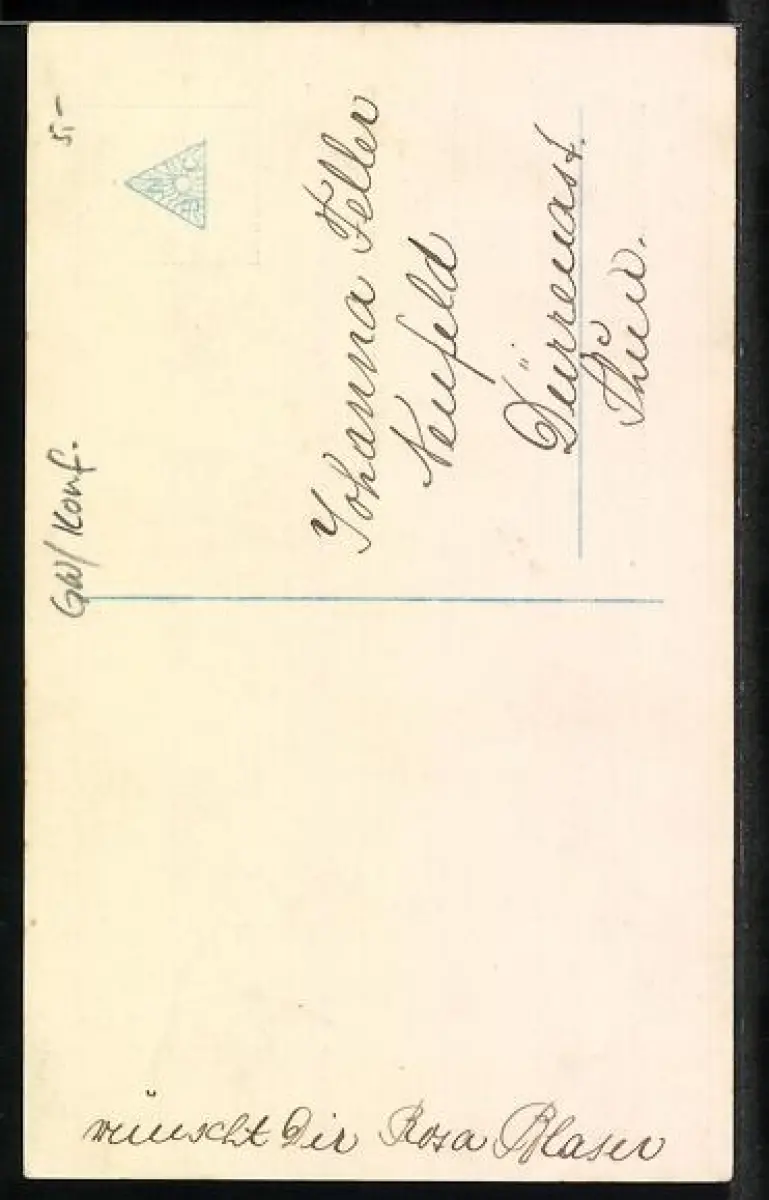 5.-
GW/ Konf.
Johanna Feller
Neufeld
Dürrenast.
Thun.
wünscht Dir Rosa Blaser